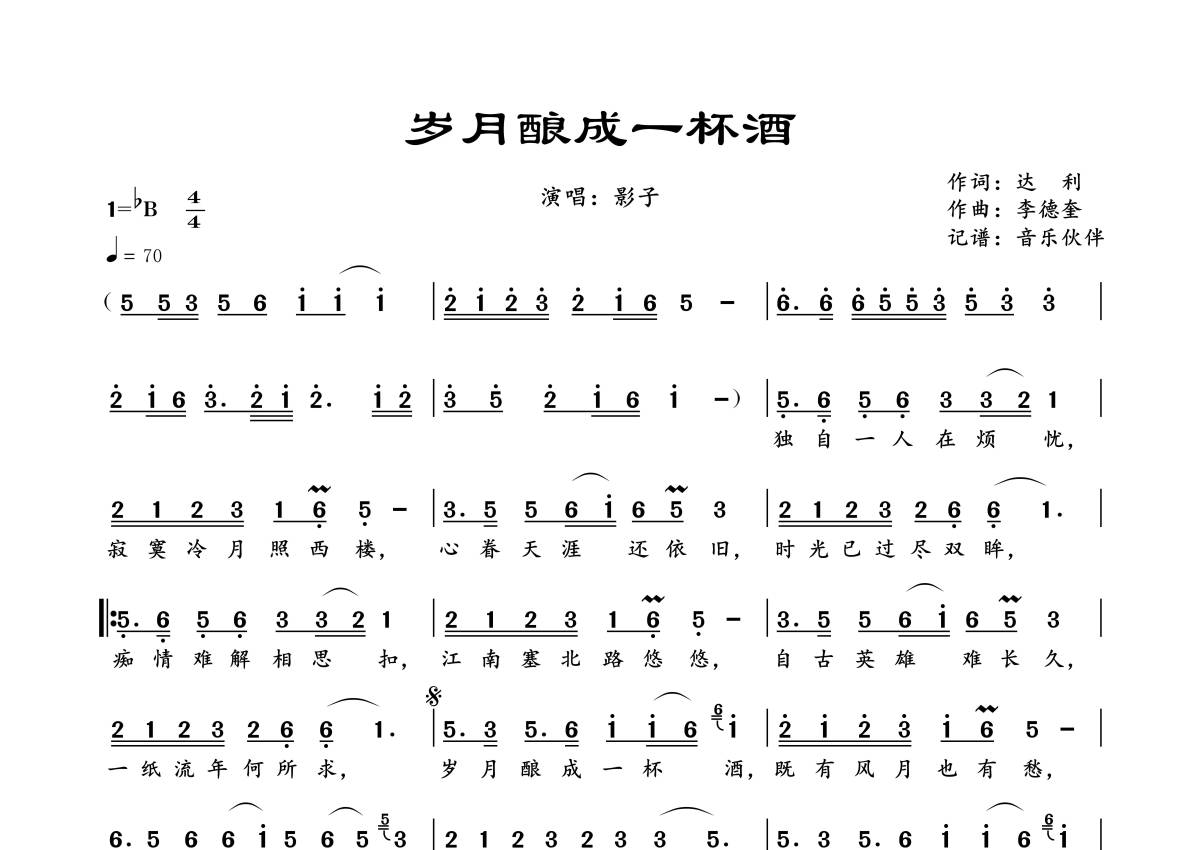 岁月酿成一杯酒
1=♭B 4/4
演唱：影子
作词：达 利
作曲：李德奎
记谱：音乐伙伴
♩= 70
( 5 5 3 5 6 i i i | 2 i 2 3 2 i 6 5 – | 6. 6 6 5 5 3 5 3 3 |
2 i 6 3. 2 i 2. i 2 | 3 5 2 i 6 i – ) | 5. 6 5 6 3 3 2 1 |
独 自 一 人 在 烦 忧，
2 1 2 3 1 6 5 – | 3. 5 5 6 i 6 5 3 | 2 1 2 3 2 6 6 1. |
寂 寞 冷 月 照 西 楼， 心 眷 天 涯 还 依 旧， 时 光 已 过 尽 双 眸，
5. 6 5 6 3 3 2 1 | 2 1 2 3 1 6 5 – | 3. 5 5 6 i 6 5 3 |
痴 情 难 解 相 思 扣， 江 南 塞 北 路 悠 悠， 自 古 英 雄 难 长 久，
2 1 2 3 2 6 6 1. | 5. 3 5. 6 i i 6 6 i | 2 i 2 3 i 6 5 – |
一 纸 流 年 何 所 求， 岁 月 酿 成 一 杯 酒， 既 有 风 月 也 有 愁，
6. 5 6 6 i 5 6 5 5 3 | 2 1 2 3 2 3 3 5. | 5. 3 5. 6 i i 6 6 i |